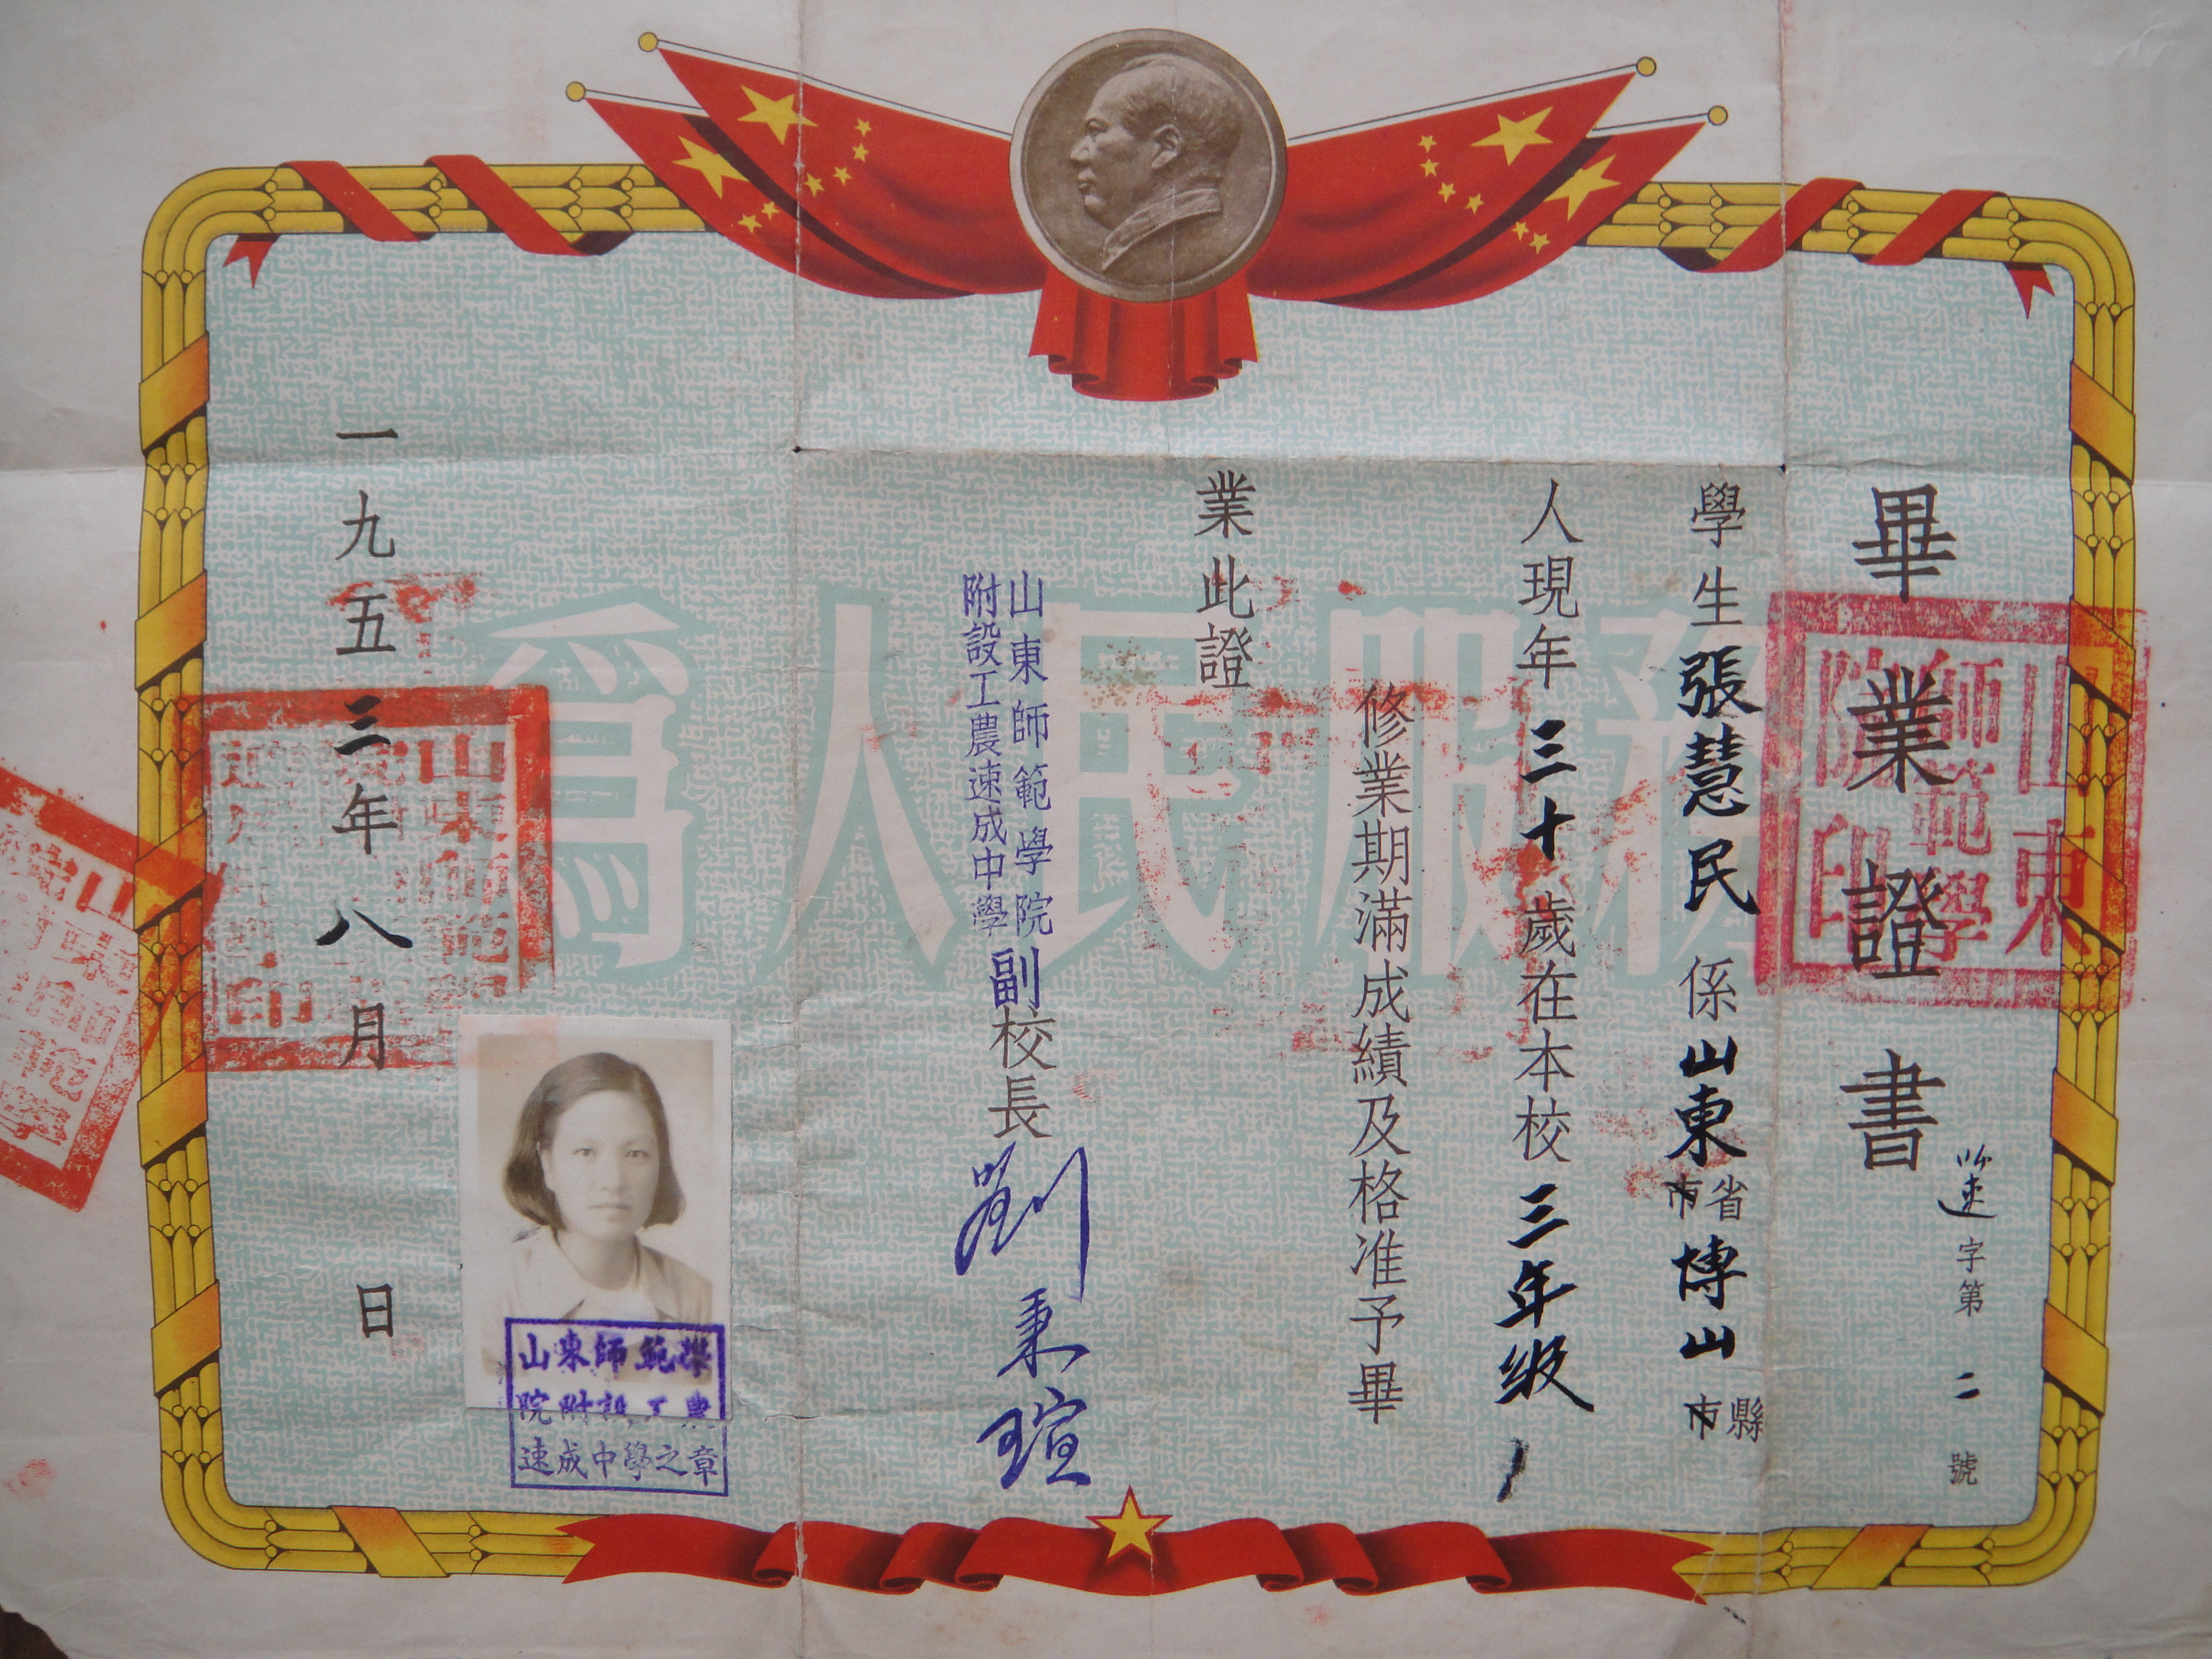 畢業證書
速字第二號
學生張慧民係山東省市博山縣市
人現年三十歲在本校三年級
修業期滿成績及格准予畢
業此證
山東師範學院
附設工農速成中學
副校長劉秉瑄
一九五三年八月 日
為人民服務
山東師範學院印
山東師範學
院附設工農
速成中學之章